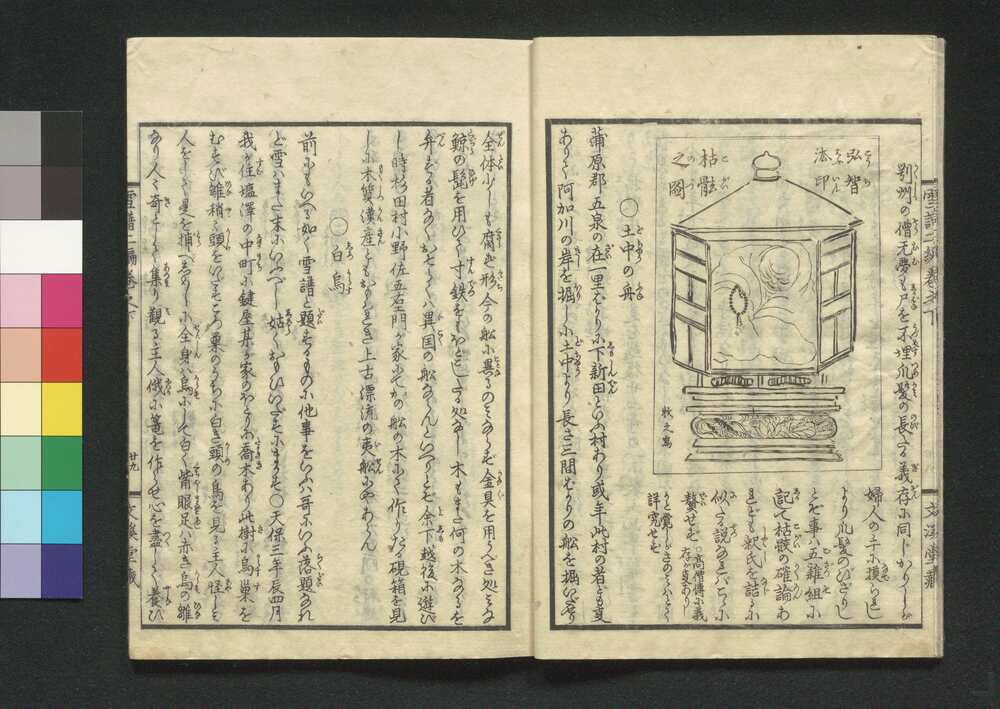 雪譜二編巻之下
文溪堂藏
別州の僧无夢も尸を不埋爪髪の長たる義存に同じかりしが
弘智
法印
枯骸
之圖
牧之寫
婦人の手に摸られし
より爪髪ののびざりし
とぞ事ハ五雜組に
記て枯骸の確論あ
れども釈氏を詰るに
似たる説なればこゝに
贅せず
高僧傳に義
存が事あり
詳究せず
○土中の舟
蒲原郡五泉の在一里ばかりに下新田といふ村あり或年此村の者ども夏
ありて阿加川の岸を掘しに土中より長さ三間ばかりの船を掘いだせり
全体少しも腐ず形今の船に異るのみならず金具を用ふべき処みな
鯨の髭を用ひて寸鉄をもほどこしたる処なし木もまた何の木なるを
弁ずる者なくおそらくハ異国の船ならんといへりとぞ余下越後に遊び
し時杉田村小野佐五右エ門が家にてかの船の木にて作りたる硯箱を見
しに木質漢産ともおもはれき上古漂流の夷船にやあらん
○白烏
前にもいへる如く雪譜と題するものに他事をいふハ哥にいふ落題なれ
ど雪ハまだ末にいふべし姑くおもひいだせるにまかす○天保三年辰四月
我が住塩澤の中町に鍵屋某が家のほとりに喬木あり此樹に烏巣を
むすび雛梢に頭をいだすころ巣のうちに白き頭の烏を見る主人怪しみ
人をして是を捕へしめしに全身ハ烏にして白く觜眼足ハ赤き烏の雛
なり人々奇として集り觀る主人俄に篭を作らせ心を盡して養ひ
雪譜二編巻之下
廿九
文溪堂藏